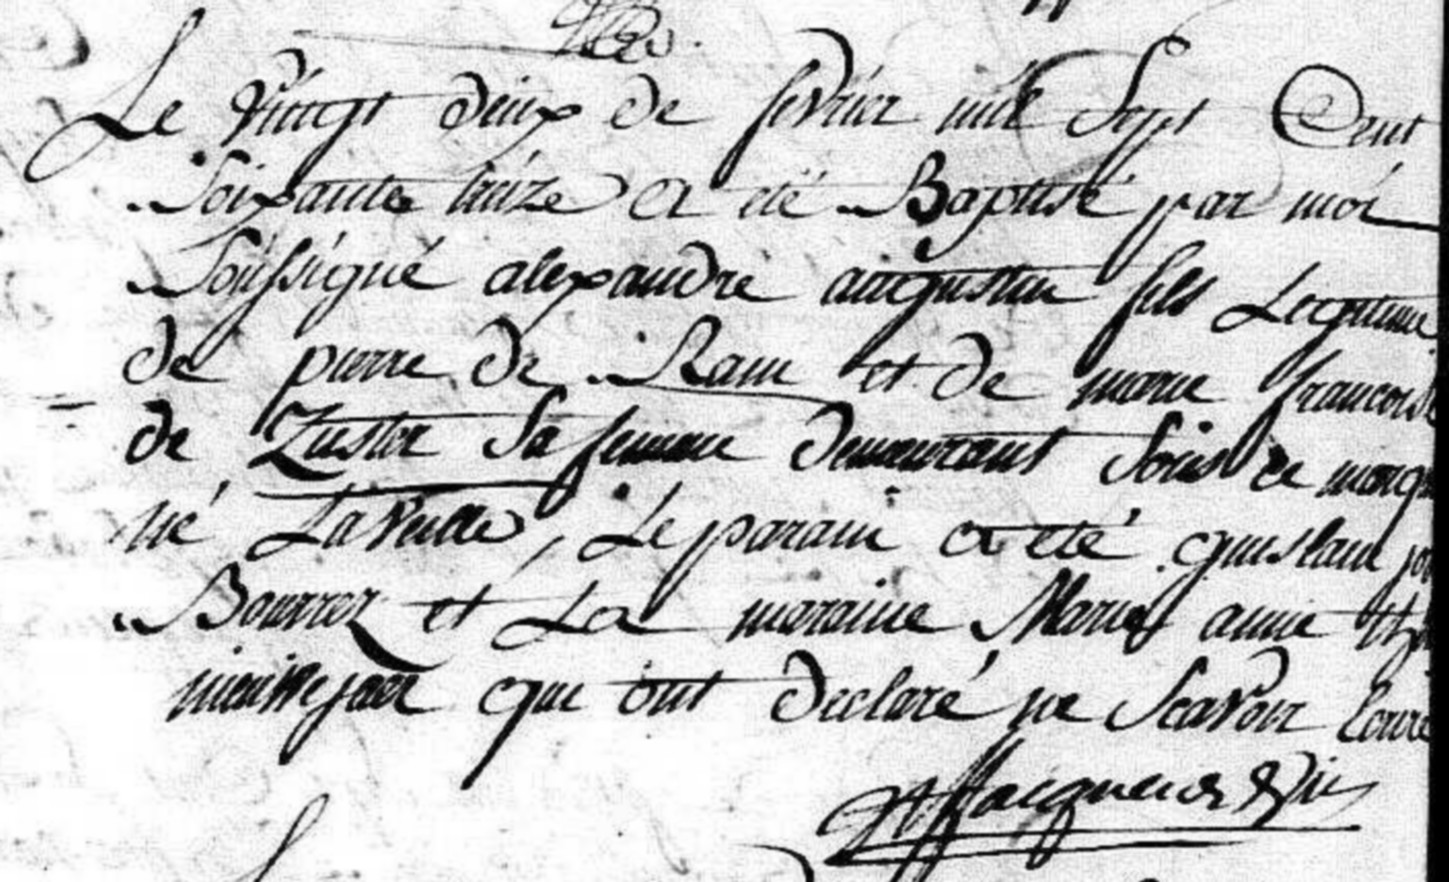 Le Vingt deux de fevrier mil Sept Cent
Soixante treize a eté Baptisé par moi
Soussigné alexandre augustin fils Legitime
de pierre de Ram et de marie francoise
de Zuster Sa femme demeurant Sous ce
né La Veille, Le parain a eté guislain
Bourrez et La maraine Marie anne
qui ont declaré ne Scavoir